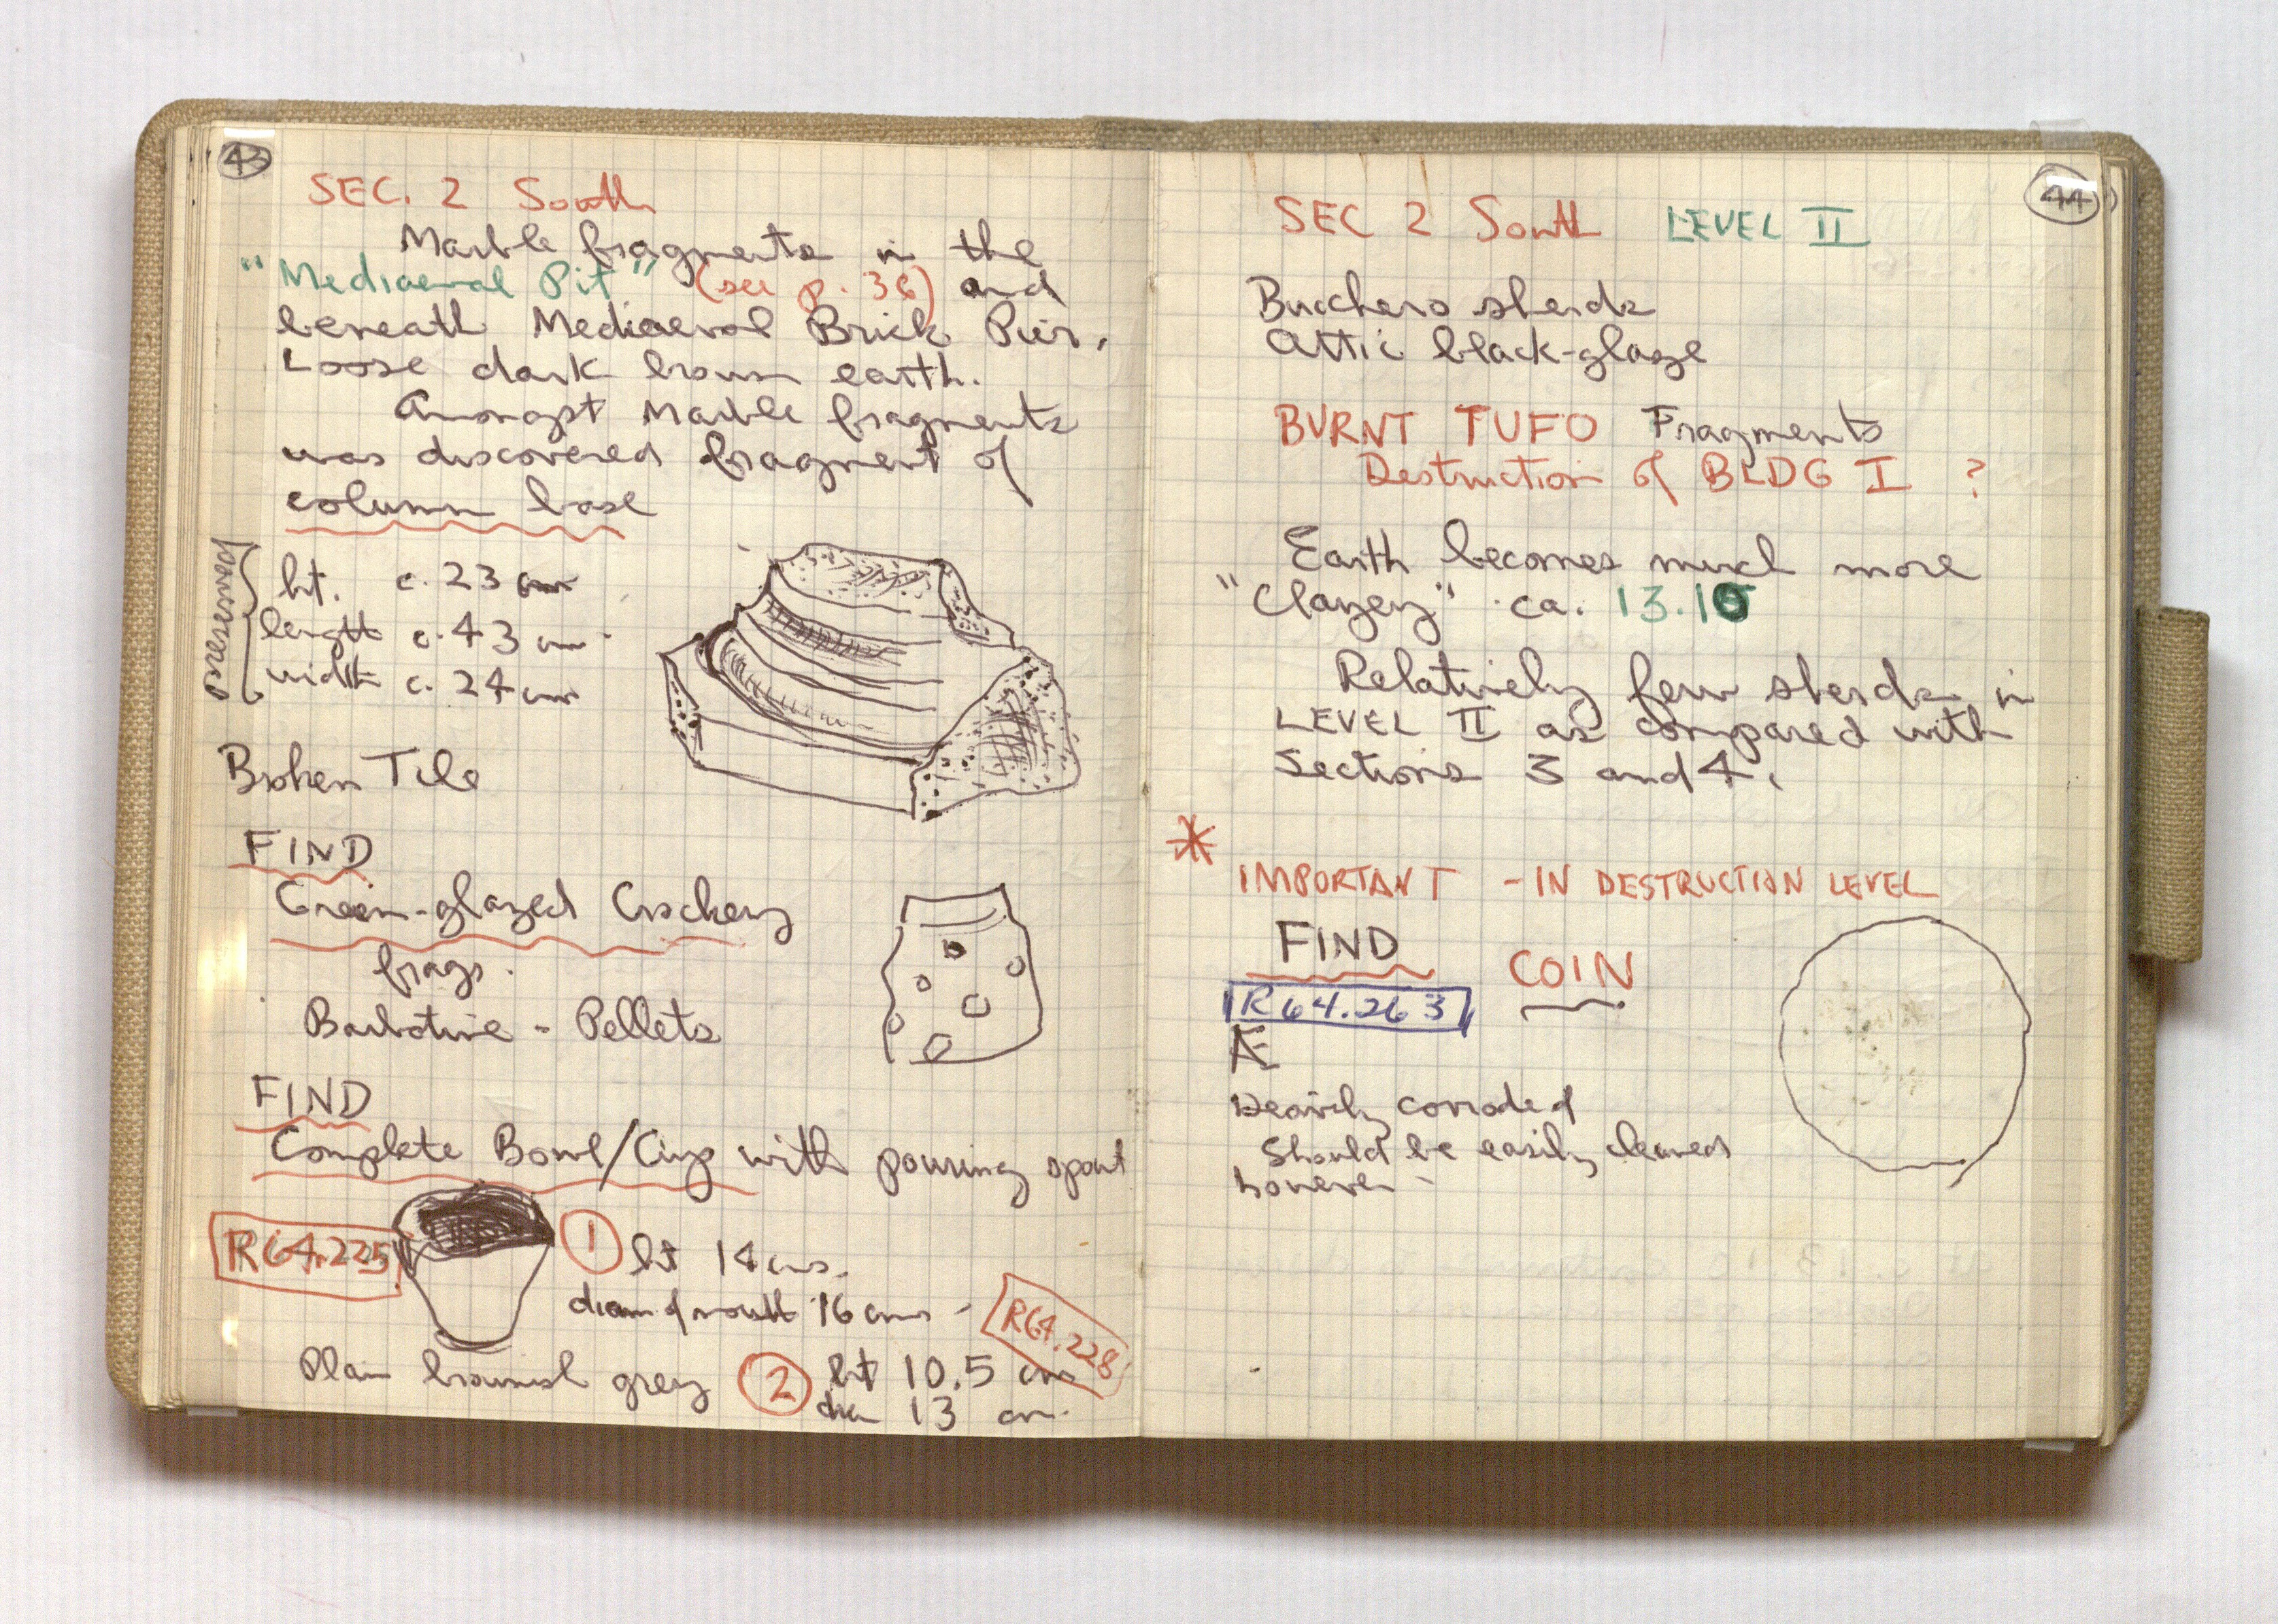 43
SEC. 2 South
Marble fragments in the
"Mediaeval Pit" (see p. 36) and
beneath Mediaeval Brick Pier.
Loose dark brown earth.
Amongst Marble fragments
was discovered fragment of
column base
preserved
ht. c. 23 cm
length c. 43 cm.
width c. 24 cm
Broken Tile
FIND
Green-glazed Crockery
frags.
Barbotine - Pellets
FIND
Complete Bowl/Cup with pouring spout
R64.225
1 ht 14 cms.
diam of mouth 16 cms -
R64.228
Plain brownish grey 2 ht 10.5 cms
dia 13 cm.
44
SEC 2 South LEVEL II
Bucchero sherds
Attic black-glaze
BURNT TUFO Fragments
Destruction of BLDG I ?
Earth becomes much more
"Clayey" ca. 13.10
Relatively few sherds in
LEVEL II as compared with
Sections 3 and 4.
*
IMPORTANT - IN DESTRUCTION LEVEL
FIND COIN
R64.263
Æ
Heavily corroded
Should be easily cleaned
however -